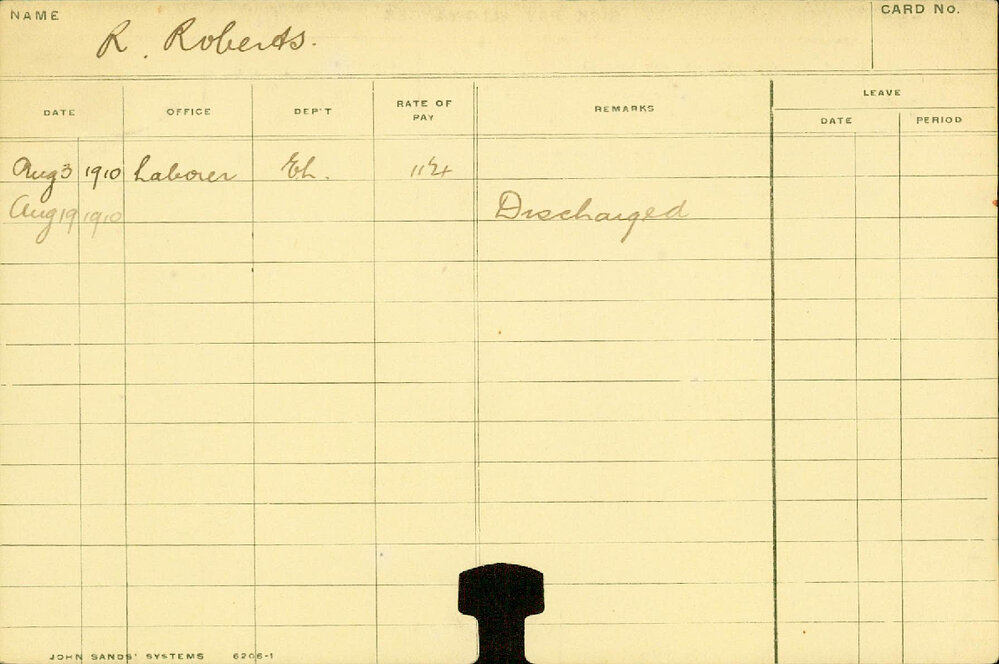 NAME R. Roberts. CARD No.
DATE OFFICE DEP'T RATE OF PAY REMARKS LEAVE
DATE PERIOD
Aug 3 1910 Laborer
Aug 19 1910 Discharged
JOHN SANDS' SYSTEMS 6206-1